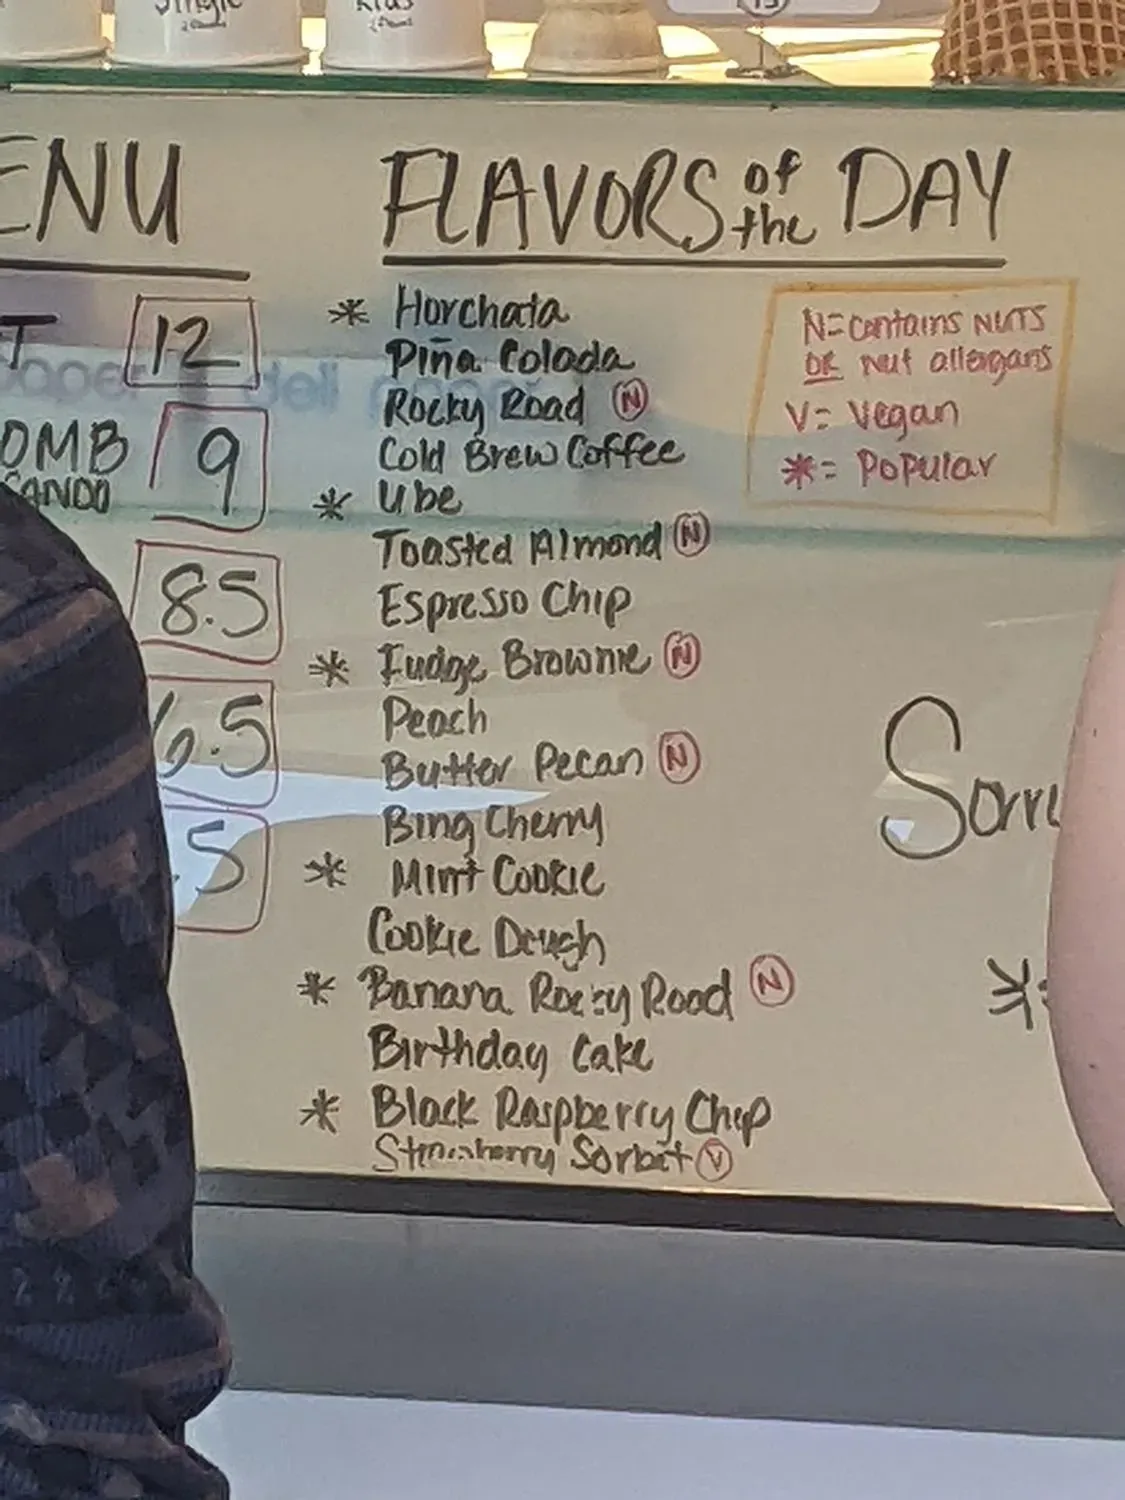 Single
Kids
ENU
T 12
OMB 9
CANDO
8.5
6.5
.5
FLAVORS of the DAY
* Horchata
Piña Colada
Rocky Road N
Cold Brew Coffee
* Ube
Toasted Almond N
Espresso Chip
* Fudge Brownie N
Peach
Butter Pecan N
Bing Cherry
* Mint Cookie
Cookie Dough
* Banana Rocky Road N
Birthday Cake
* Black Raspberry Chip
Strawberry Sorbet V
N=contains NUTS
OR nut allergans
V= Vegan
*= Popular
Sorry
*